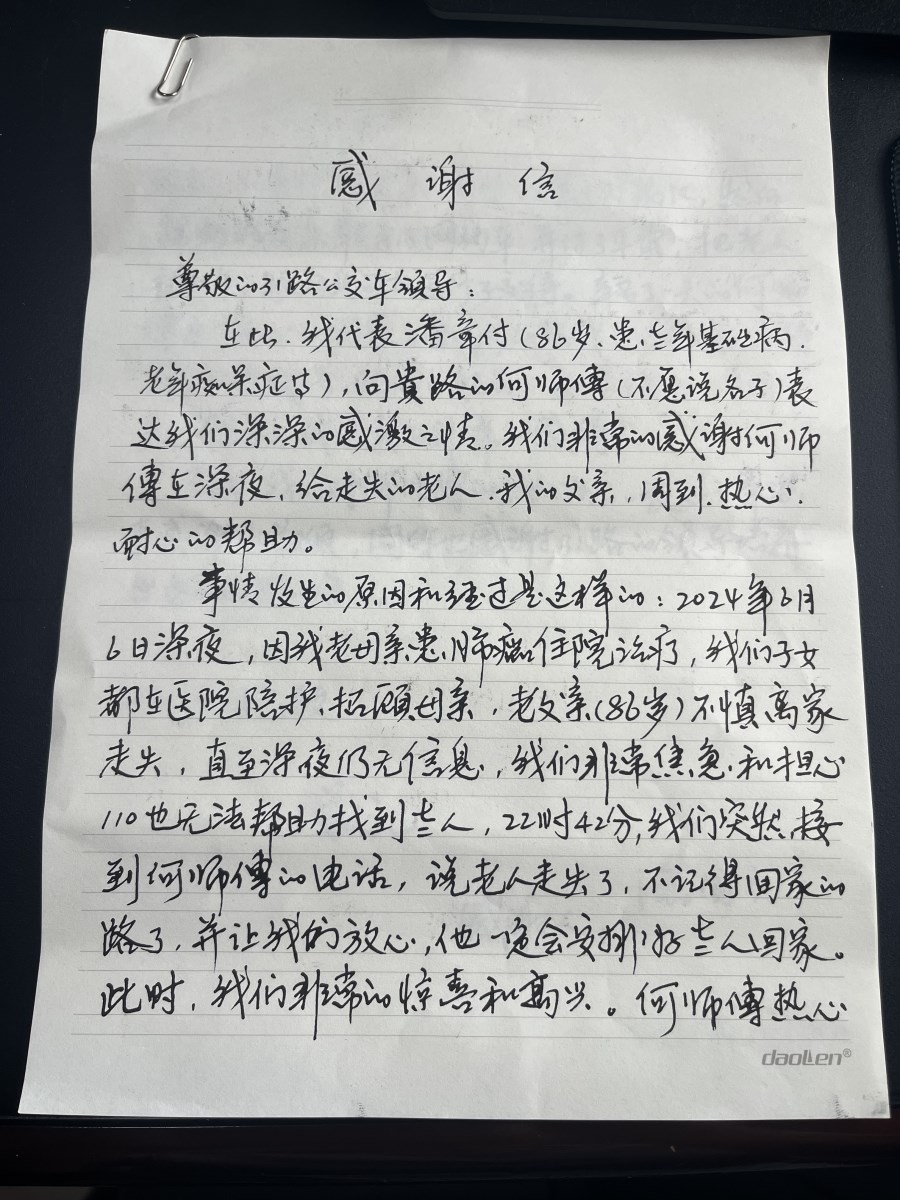 感谢信
尊敬的31路公交车领导：
在此、我代表潘章付（86岁、患老年基础病、
老年痴呆症等），向贵路的何师傅（不愿说名子）表
达我们深深的感激之情。我们非常的感谢何师
傅在深夜、给走失的老人、我的父亲，周到、热心、
耐心的帮助。
事情发生的原因和经过是这样的：2024年6月
6日深夜，因我老母亲患肺癌住院治疗，我们子女
都在医院陪护、招顾母亲，老父亲（86岁）不慎离家
走失，直至深夜仍无信息，我们非常焦急、和担心
110也无法帮助找到老人，22时42分，我们突然接
到何师傅的电话，说老人走失了，不记得回家的
路了，并让我们放心，他一定会安排好老人回家。
此时，我们非常的惊喜和高兴。何师傅热心
daoLen®